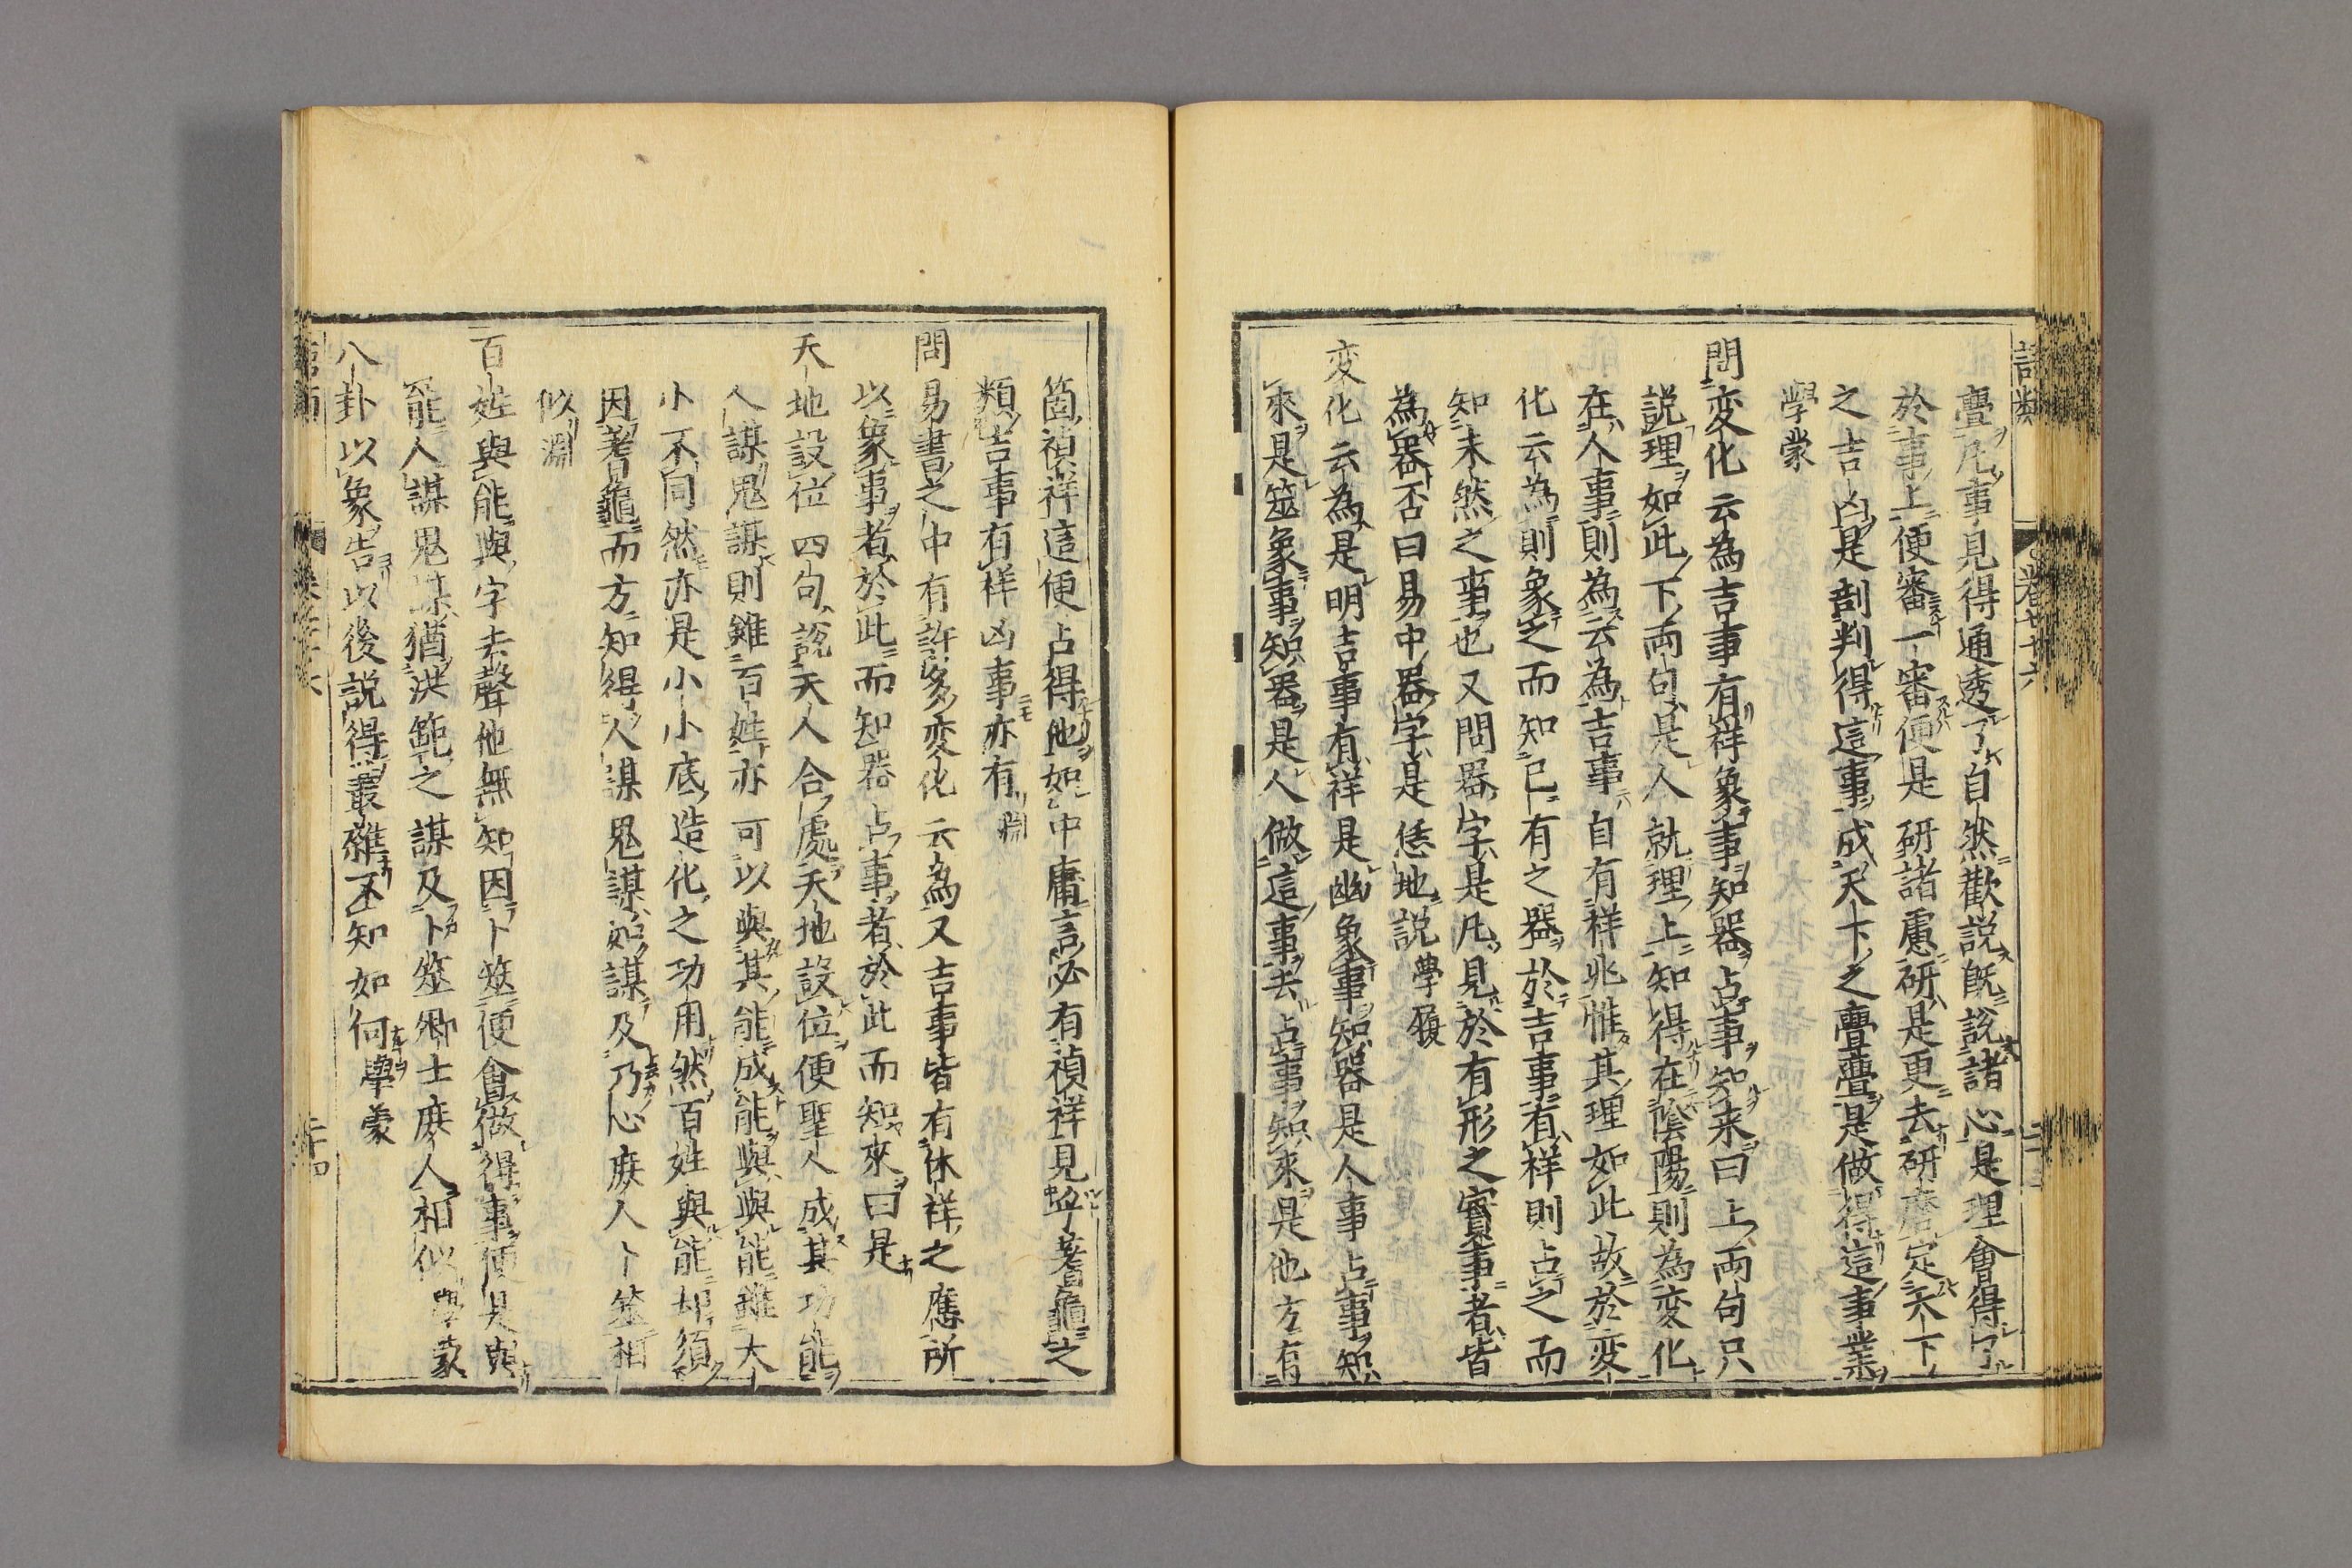 語類
卷七十六
亹凡事見得通透了自然歡説既説諸心是理會得了
於事上便審一審便是研諸慮研是更去研磨定天下
之吉凶是剖判得這事成天下之亹亹是做得這事業
學蒙
問変化云為吉事有祥象事知器占事知来曰上両句只
説理如此下両句是人就理上知得在陰陽則為変化
在人事則為云為吉事自有祥兆惟其理如此故於変
化云為則象之而知已有之器於吉事有祥則占之而
知未然之事也又問器字是凡見於有形之實事者皆
為器否曰易中器字是恁地説學履
変化云為是明吉事有祥是幽象事知器是人事占事知
來是筮象事知器是人做這事去占事知來是他方有
箇禎祥這便占得他如中庸言必有禎祥見乎蓍龜之
類吉事有祥凶事亦有淵
問易書之中有許多変化云為又吉事皆有休祥之應所
以象事者於此而知器占事者於此而知來曰是
天地設位四句説天人合處天地設位便聖人成其功能
人謀鬼謀則雖百姓亦可以與其能成能與與能雖大
小不同然亦是小小底造化之功用然百姓與能却須
因蓍龜而方知得人謀鬼謀如謀及乃心庶人卜筮相
似淵
百姓與能與字去聲他無知因卜筮便會做得事便是與
能人謀鬼謀猶洪範之謀及卜筮卿士庶人相似學蒙
八卦以象告以後説得叢雜不知如何學蒙